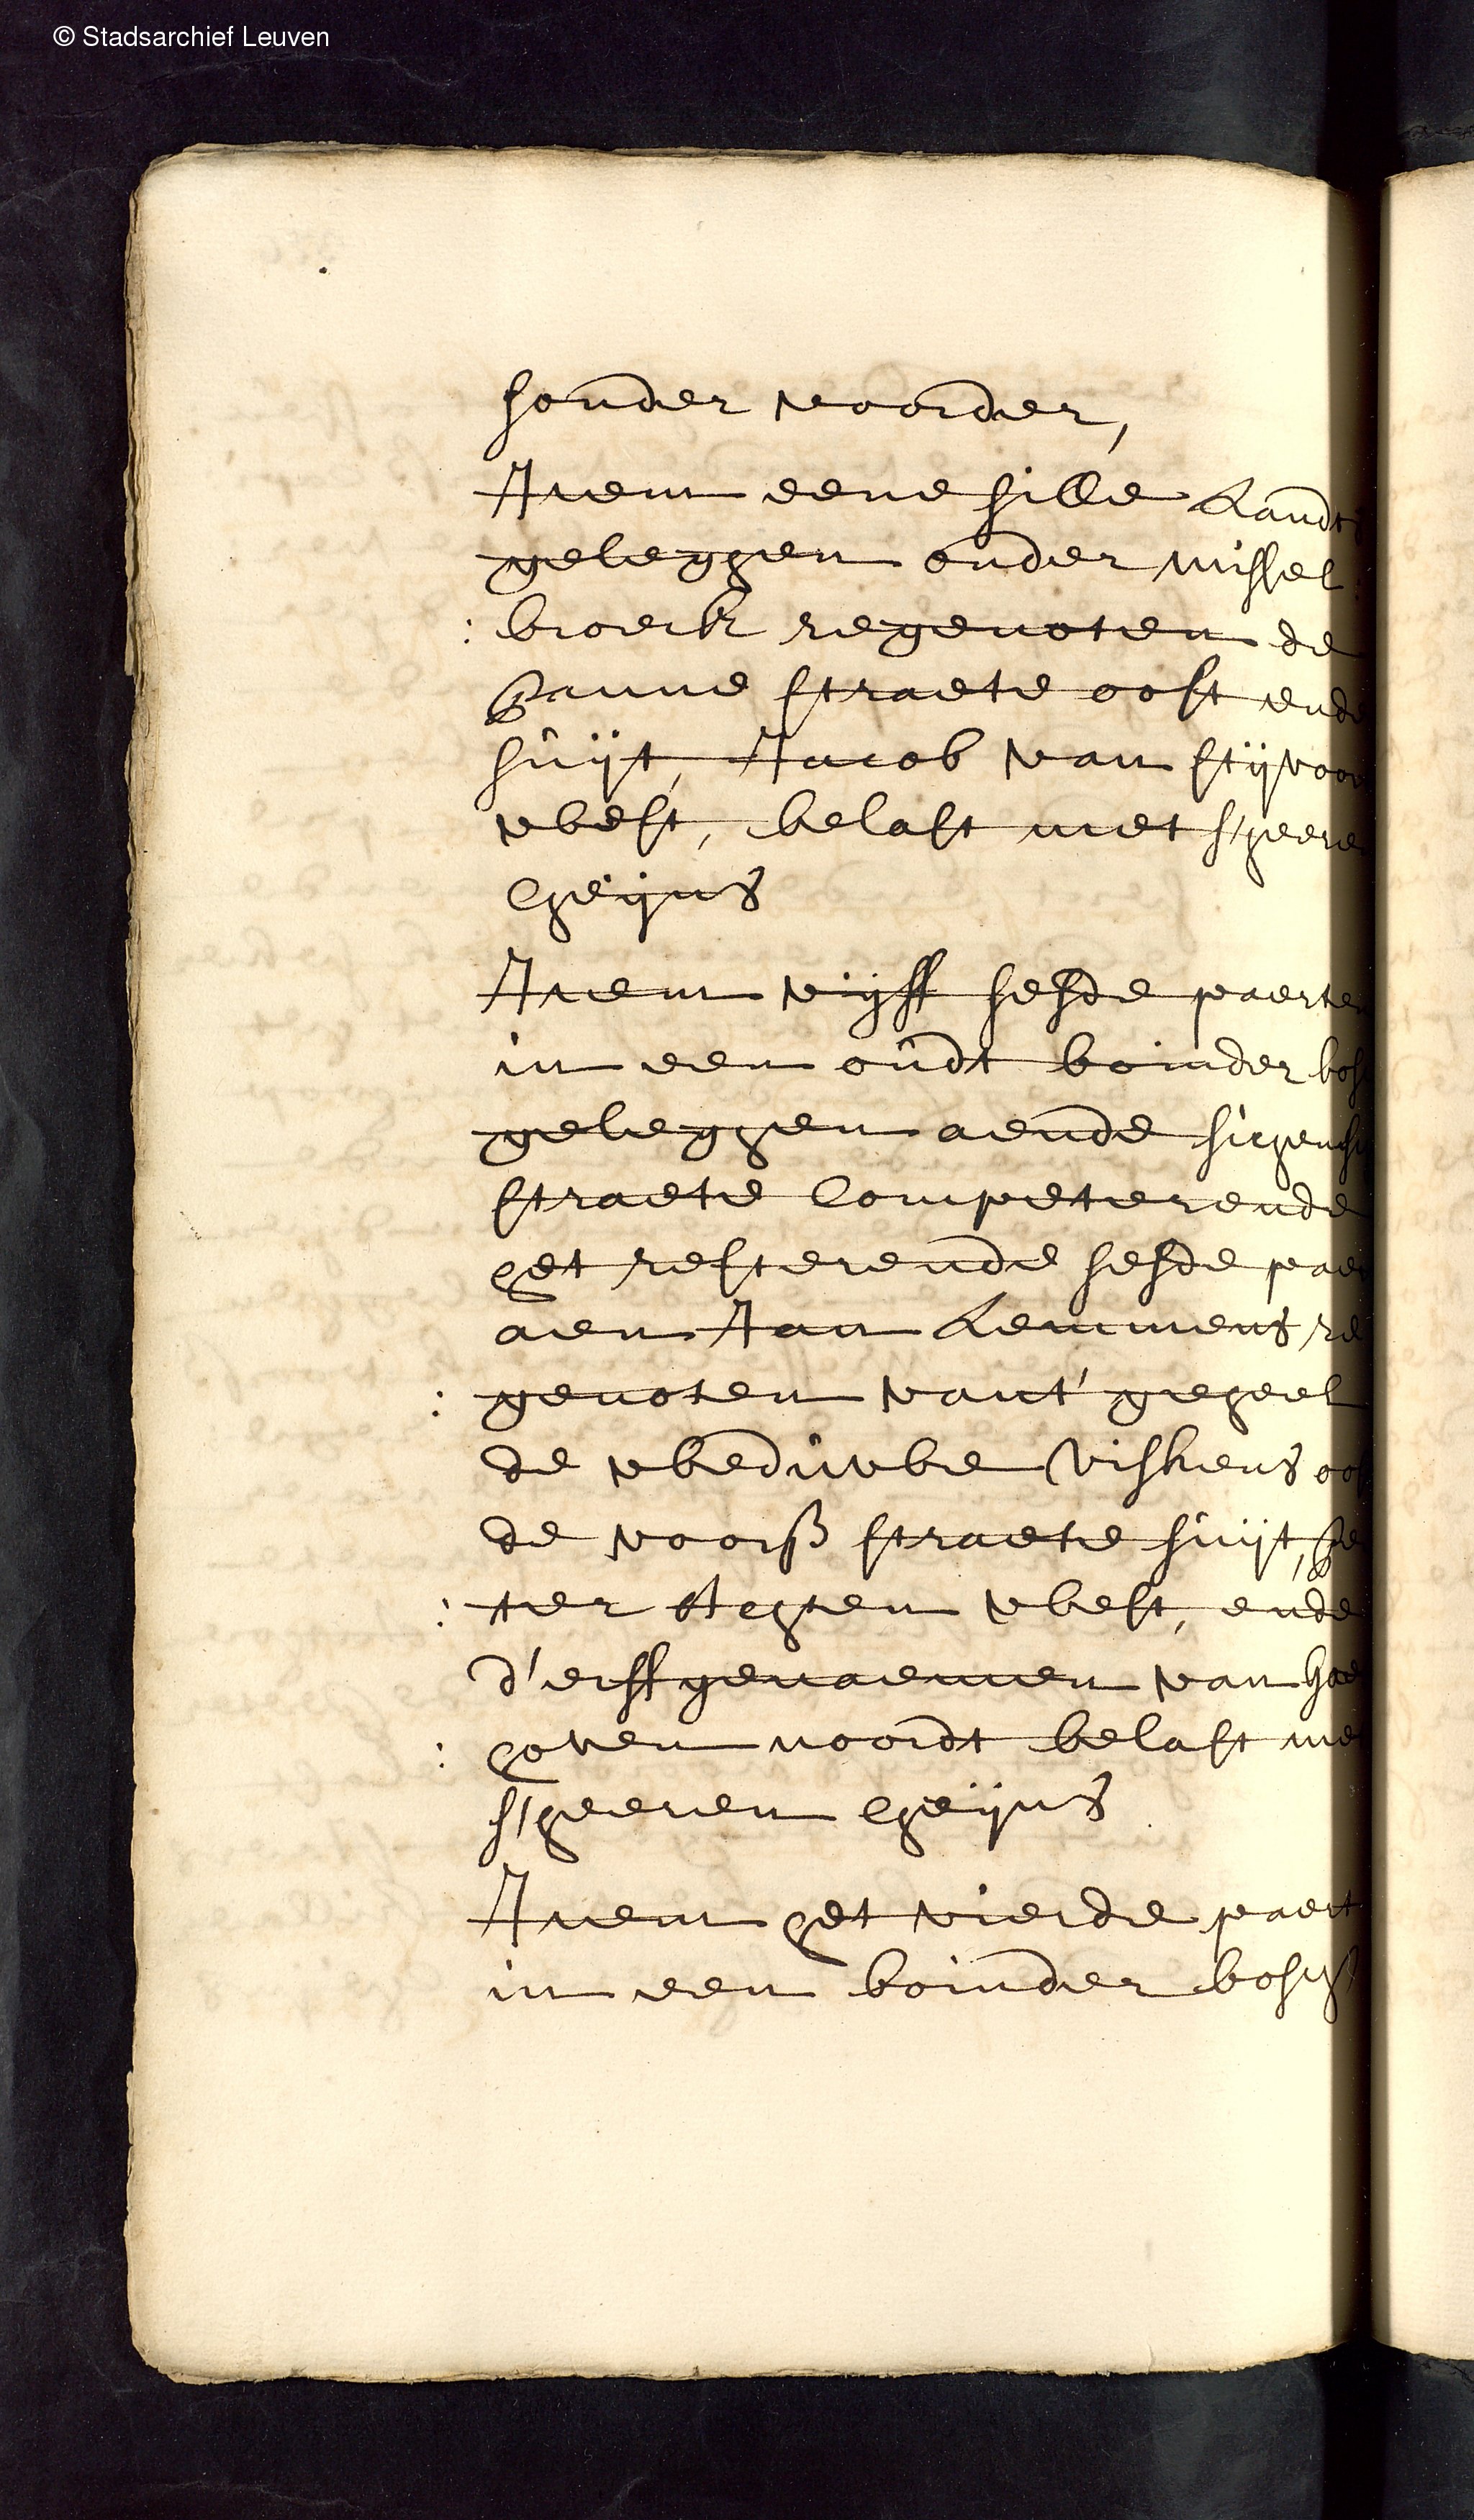 © Stadsarchief Leuven
sonder voorder,
Item eene sille Landts
geleghen onder nissel
: broeck regenoten de
panne straete oost ende
suijt, Jacob van stijvoor
west, belast met s'heere
cheijns
Item vijff sesde paerten
in een oudt boinder bos
geleghen aende
straete competerende
het resterende sesde paer
aen Jan Lemmens re
: genoten vant' geheel
de weduwe Viskens oos
de voorß straete suijt, pe
: ter Achten west, ende
d'erffgenaemen van hae
: hoven noordt belast met
s'heeren cheijns
Item het vierde paert
in een boinder bosch